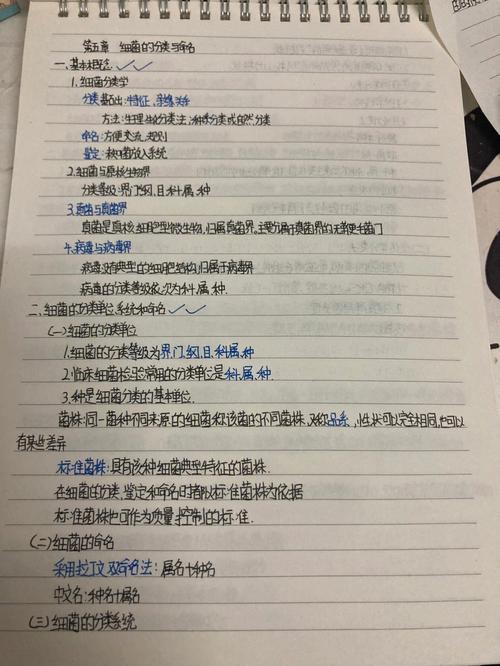 第五章 细菌的分类与命名
一、基本概念
1.细菌分类学
分类基础:特征、亲缘关系
方法:生理生化分类法,种系分类或自然分类
命名:方便交流,规则
鉴定:未知菌放入系统
2.细菌与原核生物界
分类等级:界、门、纲、目、科、属、种
3.真菌与真菌界
真菌是真核细胞型微生物,归属真菌界。主要分属于真菌界的
4.病毒与病毒界
病毒没有典型的细胞结构,归属于病毒界
病毒的分类等级依次为科、属、种.
二.细菌的分类单位、系统和命名
(一)细菌的分类单位
1.细菌的分类等级为界、门、纲、目、科、属、种
2.临床细菌检验常用的分类单位是科、属、种.
3.种是细菌分类的基本单位.
菌株:同一菌种不同来源的细菌称该菌的不同菌株.又称品系,性状可以完全相同,也可以
有某些差异
标准菌株:具有该种细菌典型特征的菌株.
在细菌的分类、鉴定和命名时都以标准菌株为依据
标准菌株也可作为质量控制的标准.
(二)细菌的命名
采用拉丁文双命名法:属名+种名
中文名:种名+属名
(三)细菌的分类系统